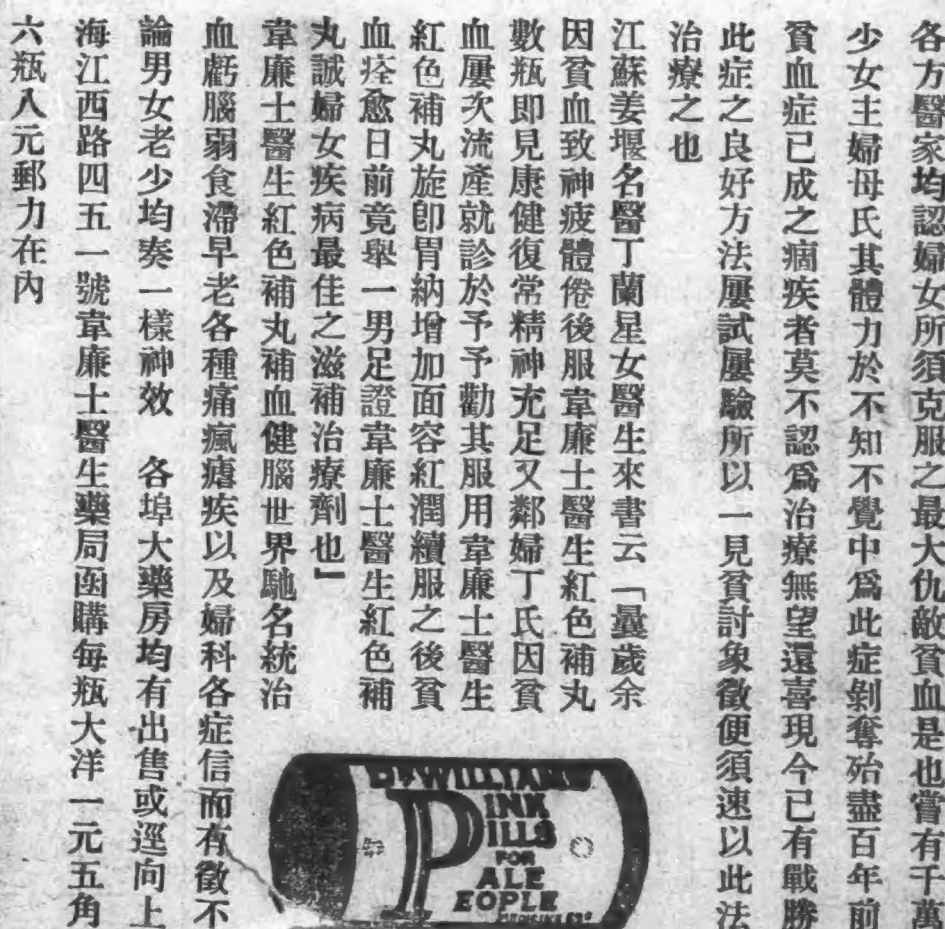 各方醫家均認婦女所須克服之最大仇敵貧血是也嘗有千萬
少女主婦母氏其體力於不知不覺中爲此症剝奪殆盡百年前
貧血症已成之痼疾者莫不認爲治療無望還喜現今已有戰勝
此症之良好方法屢試屢驗所以一見貧討象徵便須速以此法
治療之也
江蘇姜堰名醫丁蘭星女醫生來書云「曩歲余
因貧血致神疲體倦後服韋廉士醫生紅色補丸
數瓶即見康健復常精神充足又鄰婦丁氏因貧
血屢次流產就診於予予勸其服用韋廉士醫生
紅色補丸旋卽胃納增加面容紅潤續服之後貧
血痊愈日前竟舉一男足證韋廉士醫生紅色補
丸誠婦女疾病最佳之滋補治療劑也」
韋廉士醫生紅色補丸補血健腦世界馳名統治
血虧腦弱食滯早老各種痛瘋瘧疾以及婦科各症信而有徵不
論男女老少均奏一樣神效　各埠大藥房均有出售或逕向上
海江西路四五一號韋廉士醫生藥局函購每瓶大洋一元五角
六瓶八元郵力在內
DR WILLIAMS
PINK
PILLS
FOR
PALE
PEOPLE